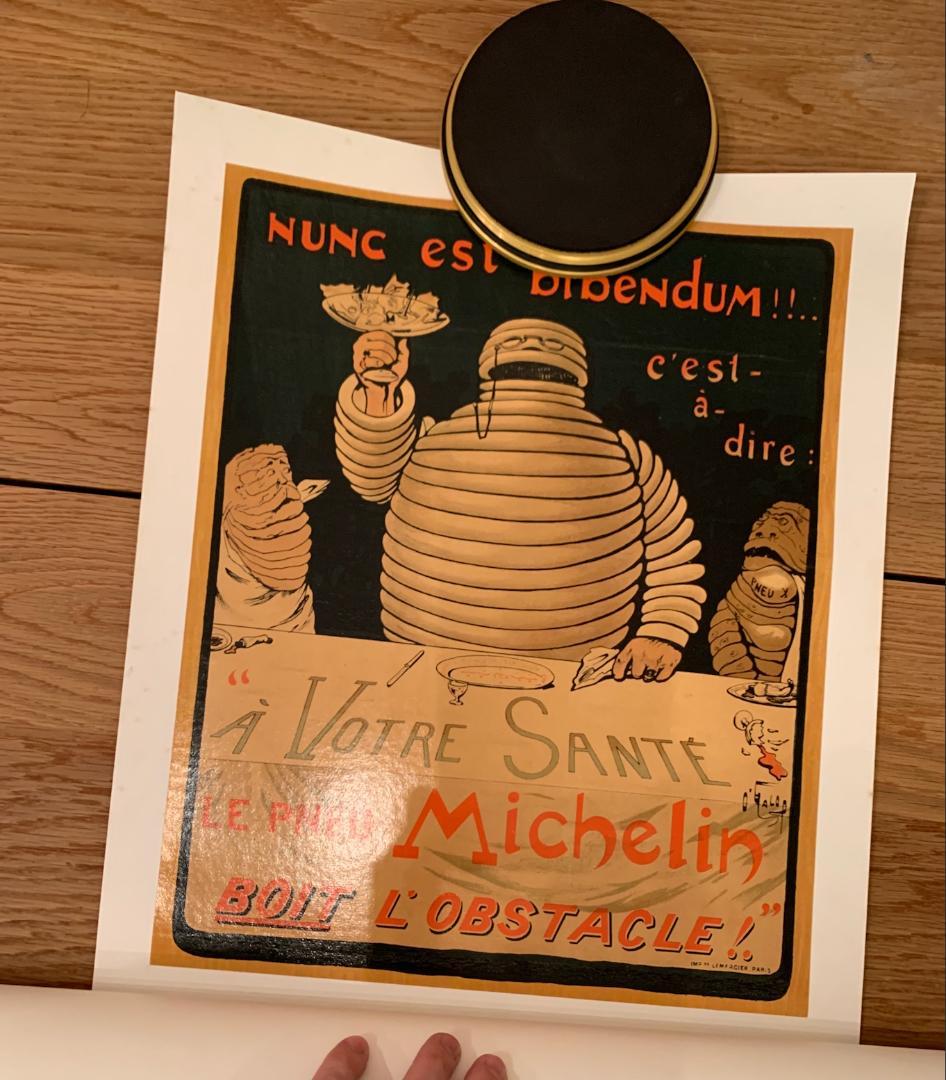 NUNC est bibendum!!..
c'est-
à-
dire:
PNEU X
"À VOTRE SANTÉ
O'Galop
LE PNEU Michelin
BOIT L'OBSTACLE!"
IMP. LEMERCIER, PARIS